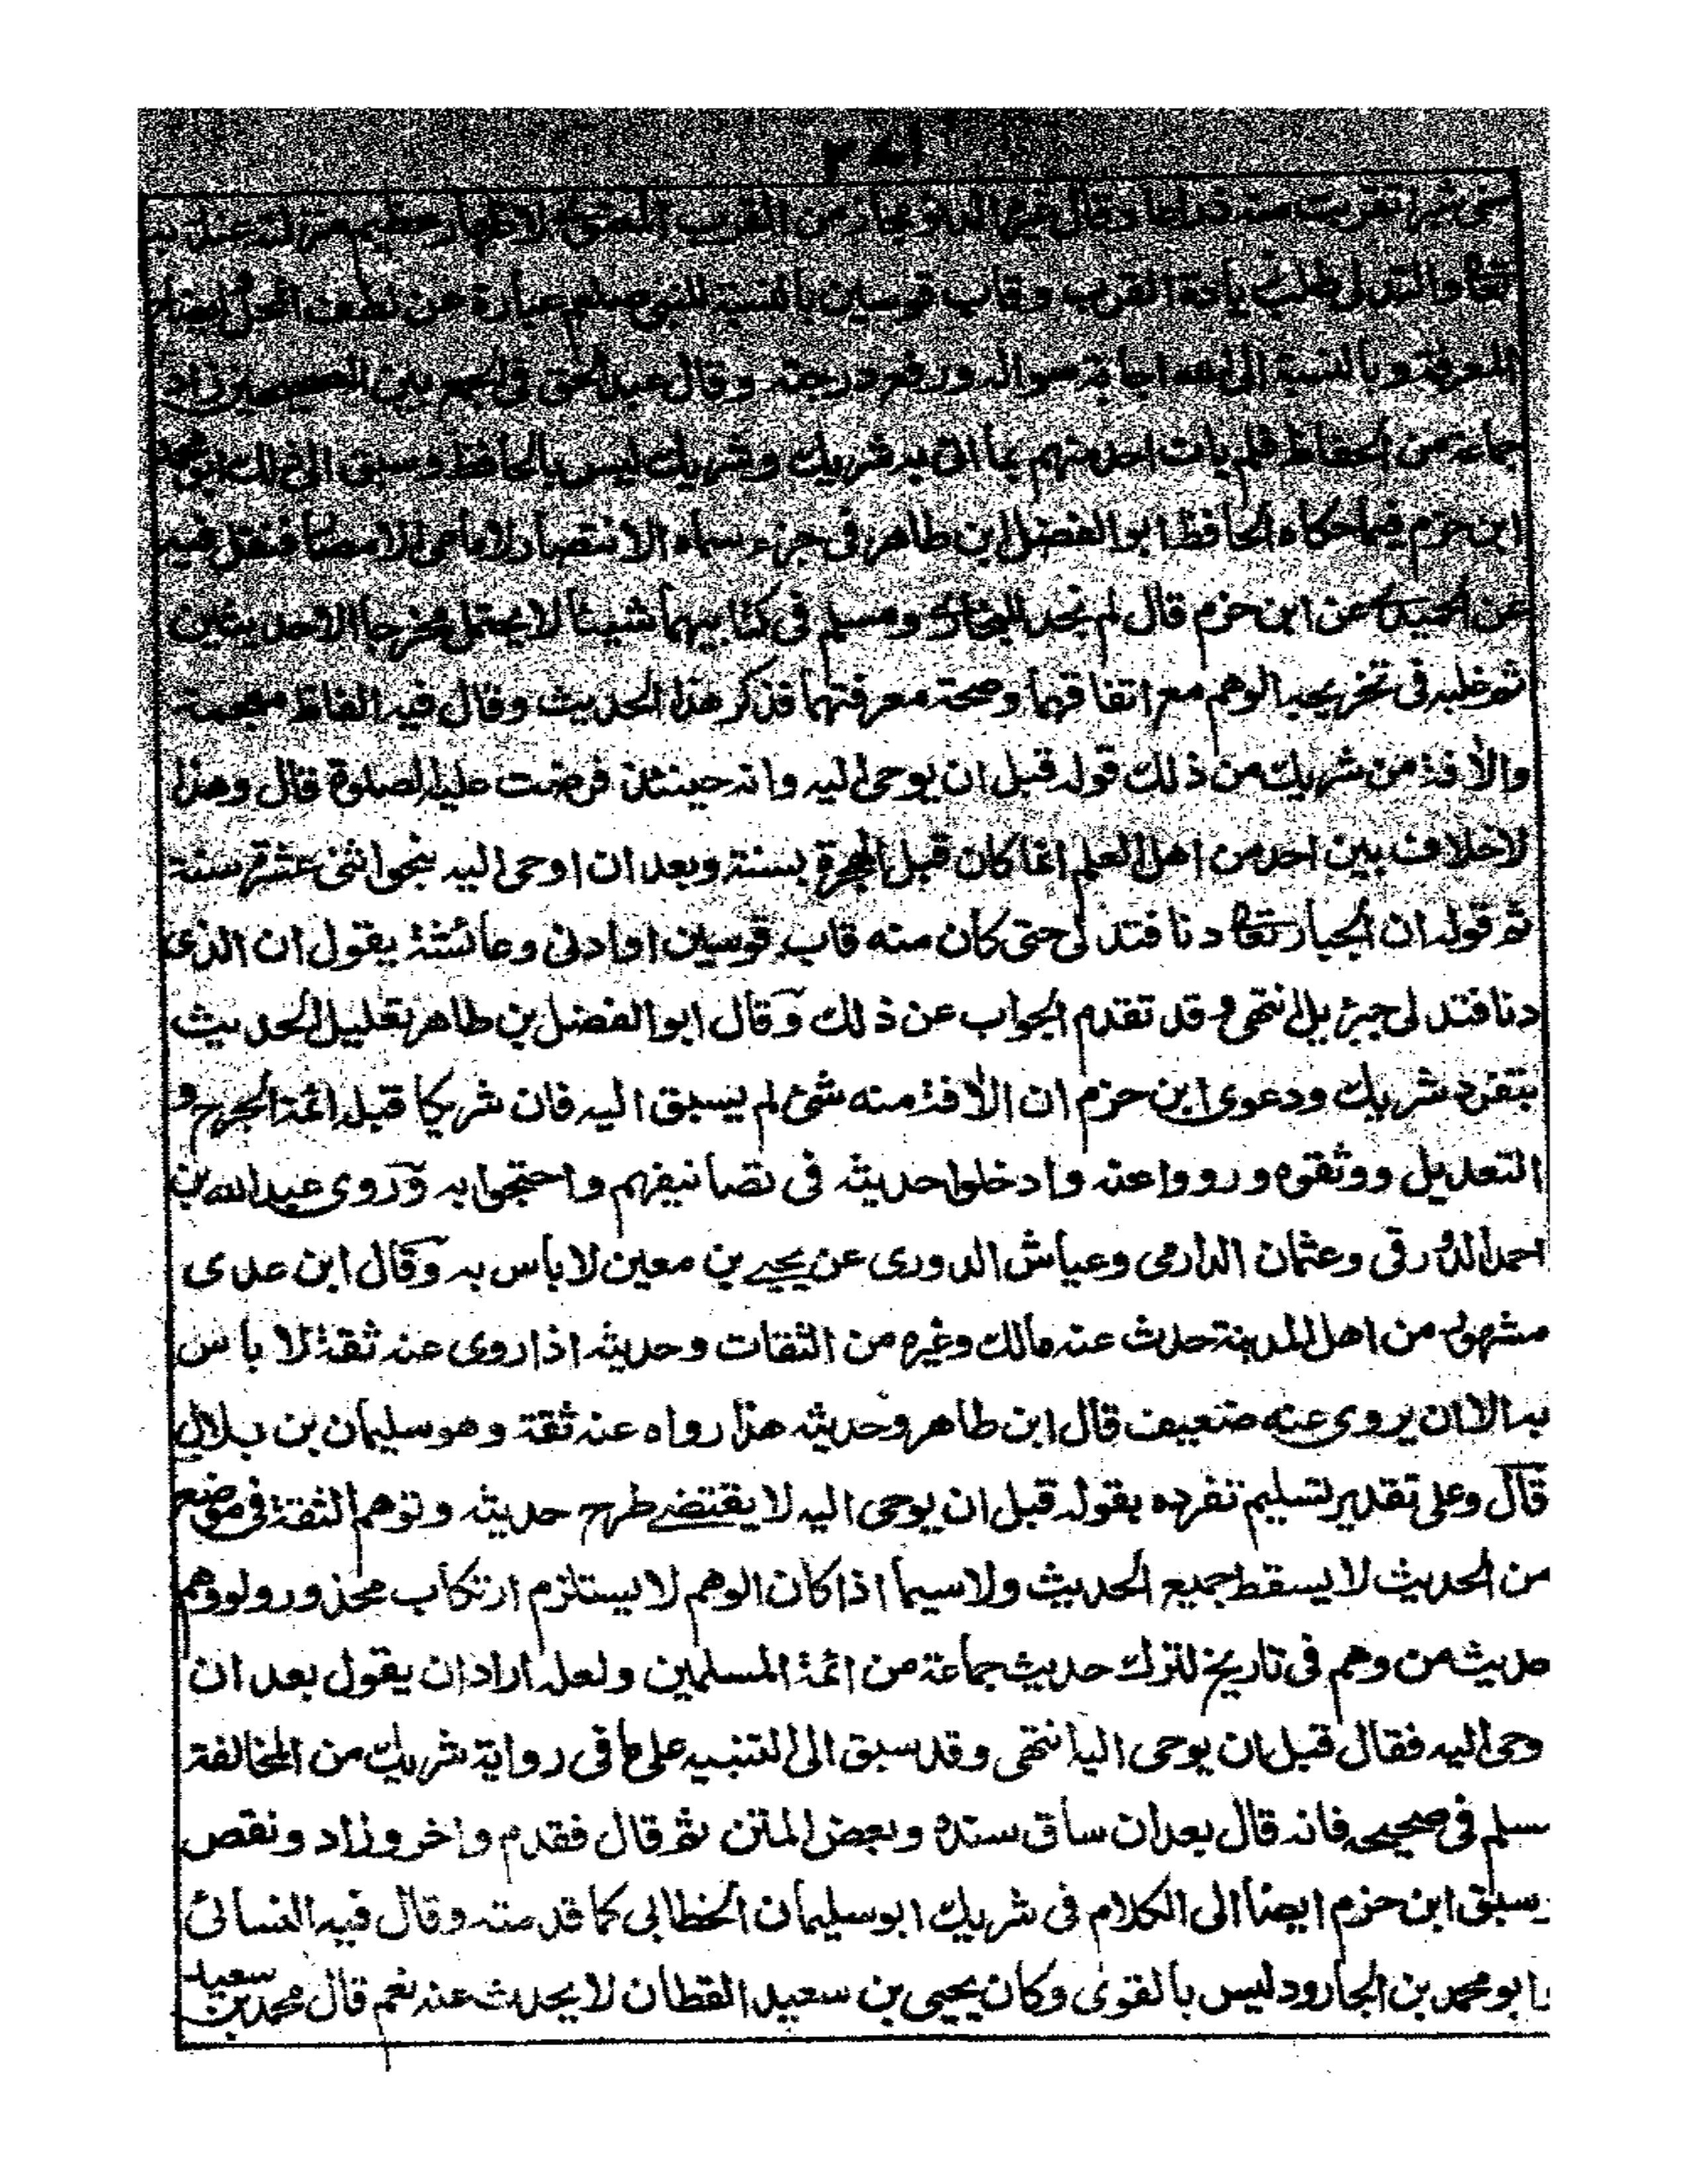 تقربت منه ذراعا وقال غيره الدنو مجاز من القرب المعنوي لاظهار عظيم منزلته عند ربه
تعا والتدلى طلب زيادة القرب وقاب قوسين بالنسبة للنبي صلعم عبارة عن لطف المحل وايضاح
المعرفة وبالنسبة الى الله اجابة سواله ورفع درجته وقال عبد الحق فى الجمع بين الصحيحين زاد
جماعة من الحفاظ فلم يات احد منهم بما اتى به شريك وشريك ليس بالحافظ وسبق الى ذلك ابو محمد
ابن حزم فيما حكاه الحافظ ابو الفضل ابن طاهر فى جزء سماه الانتصار لامامى الامصار فنقل فيه
عن الحميدى عن ابن حزم قال لم نجد للبخارى ومسلم فى كتابيهما شيئا لا يحتمل مخرجا الا حديثين
ثم غلبه فى تخريجه الوهم مع اتقانهما وصحة معرفتهما فذكر هذا الحديث وقال فيه الفاظ معجمة
والآفة من شريك من ذلك قوله قبل ان يوحى اليه وانه حينئذ فرضت عليه الصلوة قال وهذا
لا خلاف بين احد من اهل العلم انما كان قبل الهجرة بسنة وبعد ان اوحى اليه بنحو اثنى عشرة سنة
ثم قوله ان الجبار تعا دنا فتدلى حتى كان منه قاب قوسين او ادنى وعائشة يقول ان الذى
دنا فتدلى جبرئيل انتهى وقد تقدم الجواب عن ذلك وقال ابو الفضل بن طاهر تعليل الحديث
بتفرد شريك ودعوى ابن حزم ان الآفة منه شئ لم يسبق اليه فان شريكا قبله ائمة الجرح و
التعديل ووثقوه ورووا عنه وادخلوا حديثه فى تصانيفهم واحتجوا به وروى عبد الله بن
احمد الدورقى وعثمان الدارمى وعياش الدورى عن يحيى بن معين لا باس به وقال ابن عدى
مشهور من اهل المدينة حدث عنه مالك وغيره من الثقات وحديثه اذا روى عنه ثقة لا باس
به الا ان يروى عنه ضعيف قال ابن طاهر وحديثه هذا رواه عنه ثقة وهو سليمان بن بلال
قال وعلى تقدير تسليم تفرده بقوله قبل ان يوحى اليه لا يقتضى طرح حديثه وتوهم الثقة فى موضع
من الحديث لا يسقط جميع الحديث ولا سيما اذا كان الوهم لا يستلزم ارتكاب محذور ولو وهم
حديث من وهم فى تاريخ لترك حديث جماعة من ائمة المسلمين ولعله اراد ان يقول بعد ان
وحى اليه فقال قبل ان يوحى اليه انتهى وقد سبق الى التنبيه على ما فى رواية شريك من المخالفة
سلم فى صحيحه فانه قال بعد ان ساق سنده وبعض المتن ثم قال فقدم واخر وزاد ونقص
وسبق ابن حزم ايضا الى الكلام فى شريك ابو سليمان الخطابى كما قدمته وقال فيه النسائى
وابو محمد بن الجارود ليس بالقوى وكان يحيى بن سعيد القطان لا يحدث عنه نعم قال محمد بن سعيد